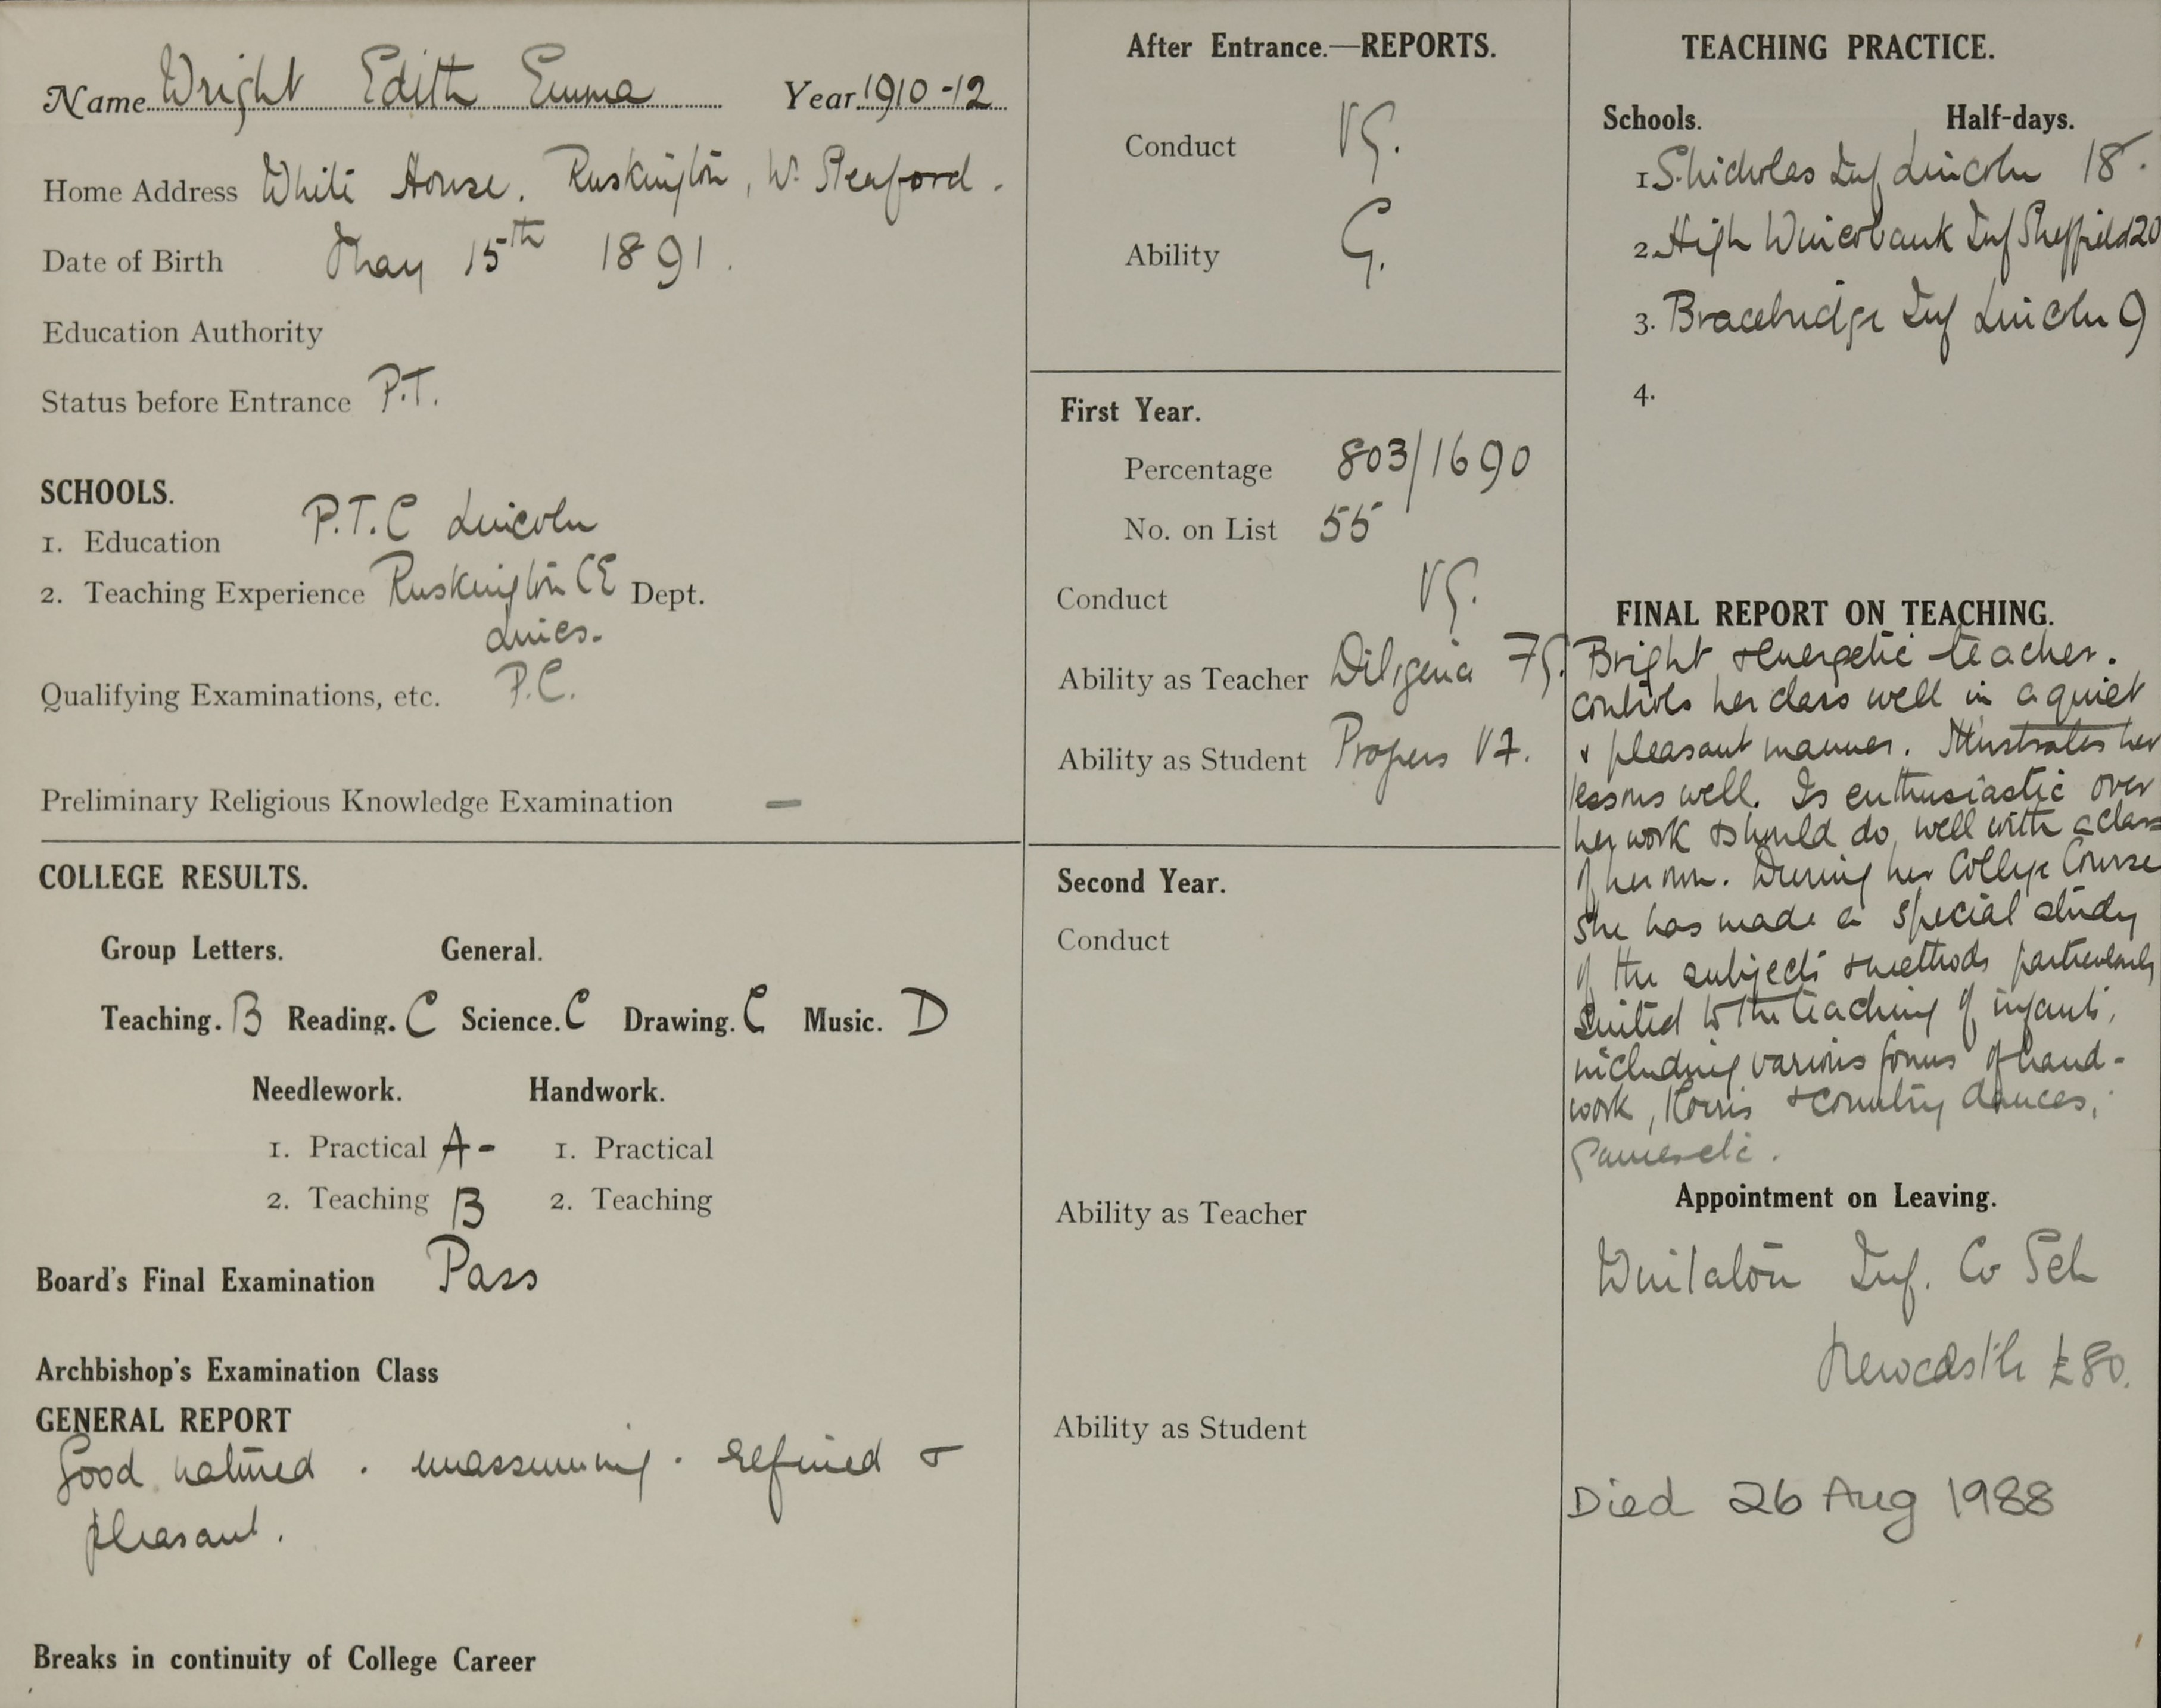 Name Wright Edith Emma Year 1910-12
Home Address White House. Ruskington, Nr. Sleaford.
Date of Birth May 15th 1891.
Education Authority
Status before Entrance P.T.
SCHOOLS.
1. Education P.T.C Lincoln
2. Teaching Experience Ruskington CE Dept.
Lincs.
Qualifying Examinations, etc. P.C.
Preliminary Religious Knowledge Examination –
COLLEGE RESULTS.
Group Letters. General.
Teaching. B Reading. C Science. C Drawing. C Music. D
Needlework. Handwork.
1. Practical A- 1. Practical
2. Teaching B 2. Teaching
Board's Final Examination Pass
Archbishop's Examination Class
GENERAL REPORT
Good natured. unassuming. refined &
pleasant.
Breaks in continuity of College Career
After Entrance.—REPORTS.
Conduct VG.
Ability G.
First Year.
Percentage 803/1690
No. on List 55
Conduct VG.
Ability as Teacher Diligence FG.
Ability as Student Progress VF.
Second Year.
Conduct
Ability as Teacher
Ability as Student
TEACHING PRACTICE.
Schools. Half-days.
1 S. Nicholas Inf Lincoln 18.
2. High Wincobank Inf Sheffield 20
3. Bracebridge Inf Lincoln 9
4.
FINAL REPORT ON TEACHING.
Bright & energetic teacher.
Controls her class well in a quiet
& pleasant manner. Illustrates her
lessons well. Is enthusiastic over
her work & should do well with a class
of her own. During her College Course
she has made a special study
of the subjects & methods particularly
suited to the teaching of infants,
including various forms of hand-
work, Morris & country dances,
games etc.
Appointment on Leaving.
Winlaton Inf. Co Sch
Newcastle £80.
Died 26 Aug 1988